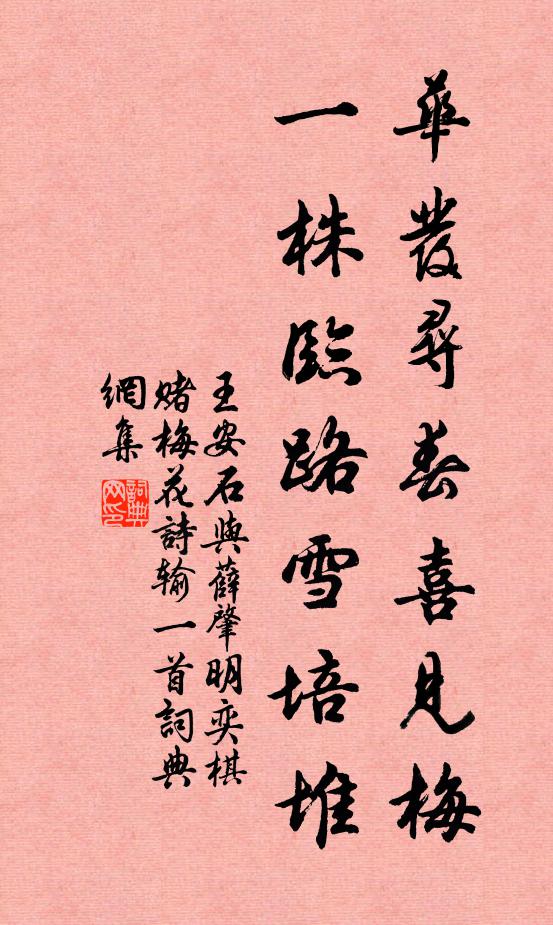 華發尋春喜見梅
一株臨路雪培堆
王安石與薛肇明奕棋
賭梅花詩输一首詞典
網集
詞典
网印